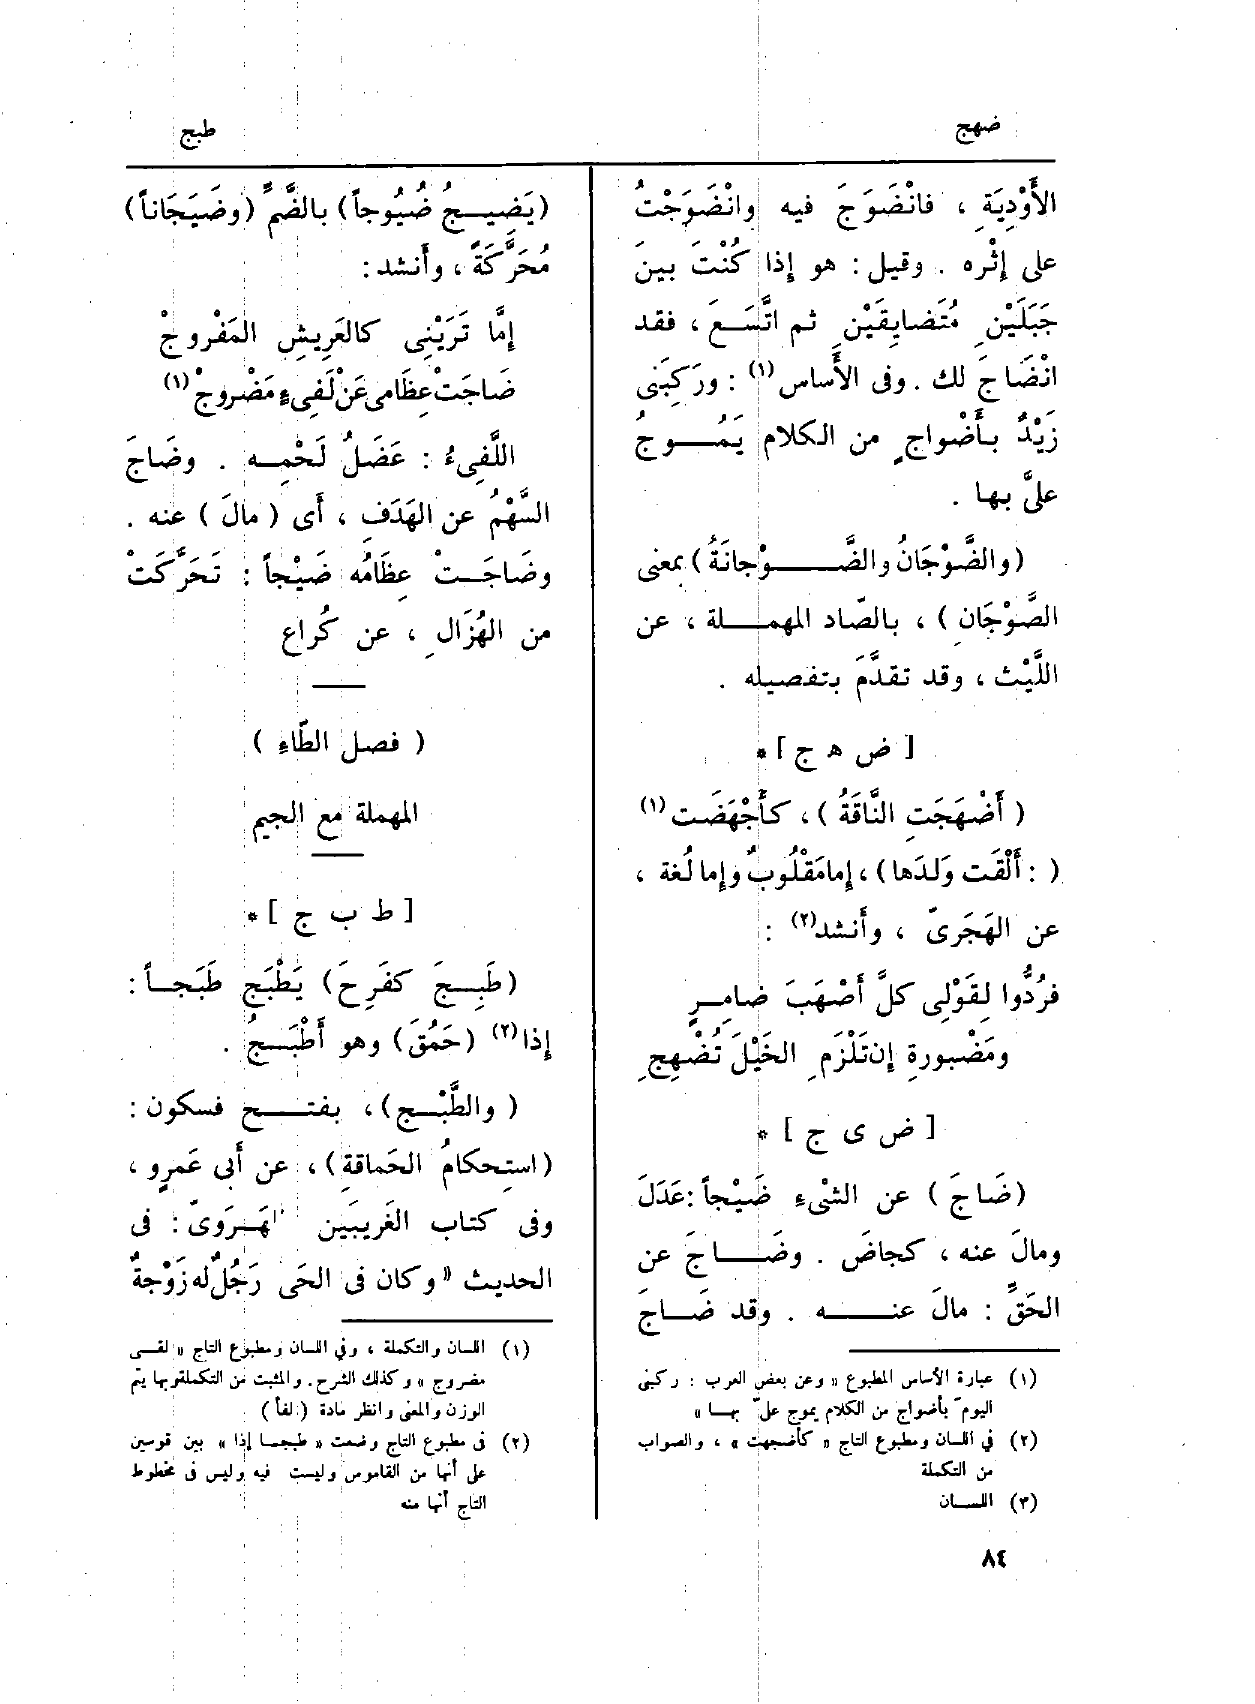 ضهج
طبج
الأَوْدِيَةِ ، فانْضَوَجَ فيه وانْضَوَجْتُ
على إِثْره . وقيل : هو إِذا كُنْتَ بين
جَبَلَيْنِ مُتَضايِقَيْنِ ثم اتَّسَعَ ، فقد
انْضَاجَ لك . وفى الأَساس (١) : ورَكِبَنى
زَيْدٌ بأَضْواجٍ من الكلام يَمُوجُ
علىَّ بها .
(والضَّوْجَانُ والضَّوْجانَةُ) بمعنى
الصَّوْجَان ) ، بالصّاد المهملة ، عن
اللَّيْث ، وقد تقدَّمَ بتفصيله .
[ ض ه ج ] *
( أَضْهَجَتِ النَّاقَةُ ) ، كأَجْهَضَت (١)
( : أَلْقَت وَلدَها ) ، إِما مَقْلُوبٌ وإِما لُغة ،
عن الهَجَرىّ ، وأَنشد (٢) :
فرُدُّوا لِقَوْلِى كلَّ أَصْهَبَ ضامِرٍ
ومَضْبورةِ إِن تَلْزَمِ الخَيْلَ تُضْهِجِ
[ ض ى ج ] *
(ضَاجَ ) عن الشْىءِ ضَيْجاً : عَدَلَ
ومالَ عنه ، كجاضَ . وضَاجَ عن
الحَقِّ : مالَ عنه . وقد ضَاجَ
(١) عبارة الأساس المطبوع « وعن بعض العرب : ركبنى
اليوم َّ بأضواج من الكلام يموج علىّ بهـا »
(٢) في اللسان ومطبوع التاج « كأضجهت » ، والصواب
من التكملة
(٣) اللسان
(يَضِيجُ ضُيُوجاً) بالضَّمِّ (وضَيَجَاناً)
مُحَرَّكَةً ، وأَنشد :
إِمَّا تَرَيْنِى كالعَرِيشِ المَفْروجْ
ضَاجَتْ عِظَامى عَنْ لَفِىءٍ مَضْروجْ (١)
اللَّفِىءُ : عَضَلُ لَحْمِه . وضَاجَ
السَّهْمُ عن الهَدَفِ ، أَى ( مالَ ) عنه .
وضَاجَتْ عِظَامُه ضَيْجاً : تَحَرَّكَتْ
من الهُزَالِ ، عن كُراع
( فصل الطّاءِ )
المهملة مع الجيم
[ ط ب ج ] *
(طَبِجَ كفَرِحَ) يَطْبَج طَبَجاً :
إِذا (٢) (حَمُقَ) وهو أَطْبَجُ .
( والطَّبْج) ، بفتح فسكون :
(استِحكامُ الحَماقةِ) ، عن أَبى عَمرٍو ،
وفى كتاب الغَريبَين للهَرَوىّ : فى
الحديث « وكان فى الحَى رَجُلٌ له زَوْجةٌ
(١) اللسان والتكملة ، وفي اللسان ومطبوع التاج « لقـى
مضروج » وكذلك الشرح . والمثبت من التكملة وبها يتم
الوزن والمعنى وانظر مادة ( لفأ )
(٢) فى مطبوع التاج وضعت « طبجـا إذا » بين قوسين
على أنها من القاموس وليست فيه وليس فى مخطوط
التاج أنها منه
٨٤